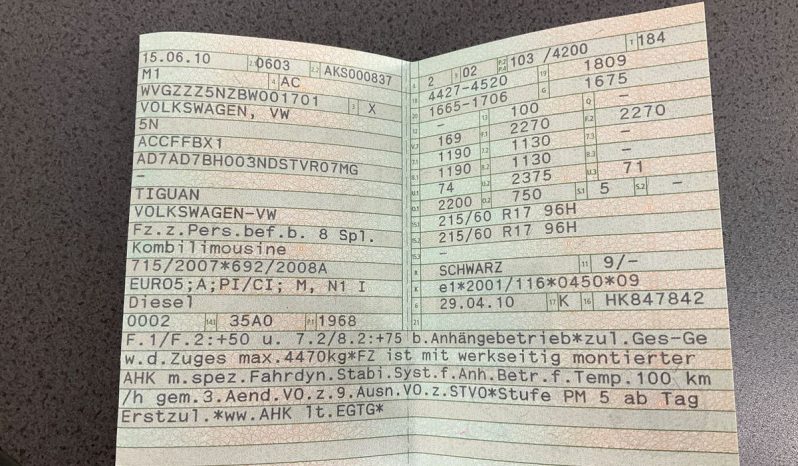 15.06.10 2.1 0603 2.2 AKS000837
M1 4 AC
WVGZZZ5NZBW001701 3 X
VOLKSWAGEN, VW
5N
ACCFFBX1
AD7AD7BH003NDSTVR07MG
–
TIGUAN
VOLKSWAGEN-VW
Fz.z.Pers.bef.b. 8 Spl.
Kombilimousine
715/2007*692/2008A
EURO5;A;PI/CI; M, N1 I
Diesel
0002 14.1 35A0 P.1 1968
2 9 02 P.2 P.4 103 /4200 T 184
18 4427-4520 19 1809
20 1665-1706 G 1675
12 – 13 100 Q –
V.7 169 F.1 2270 F.2 2270
7.1 1190 7.2 1130 7.3 –
8.1 1190 8.2 1130 8.3 –
U.1 74 U.2 2375 U.3 71
O.1 2200 O.2 750 S.1 5 S.2 –
15.1 215/60 R17 96H
15.2 215/60 R17 96H
15.3 –
R SCHWARZ 11 9/–
K e1*2001/116*0450*09
6 29.04.10 17 K 16 HK847842
21
F.1/F.2:+50 u. 7.2/8.2:+75 b.Anhängebetrieb*zul.Ges-Ge
w.d.Zuges max.4470kg*FZ ist mit werkseitig montierter
AHK m.spez.Fahrdyn.Stabi.Syst.f.Anh.Betr.f.Temp.100 km
/h gem.3.Aend.VO.z.9.Ausn.VO.z.STVO*Stufe PM 5 ab Tag
Erstzul.*ww.AHK lt.EGTG*